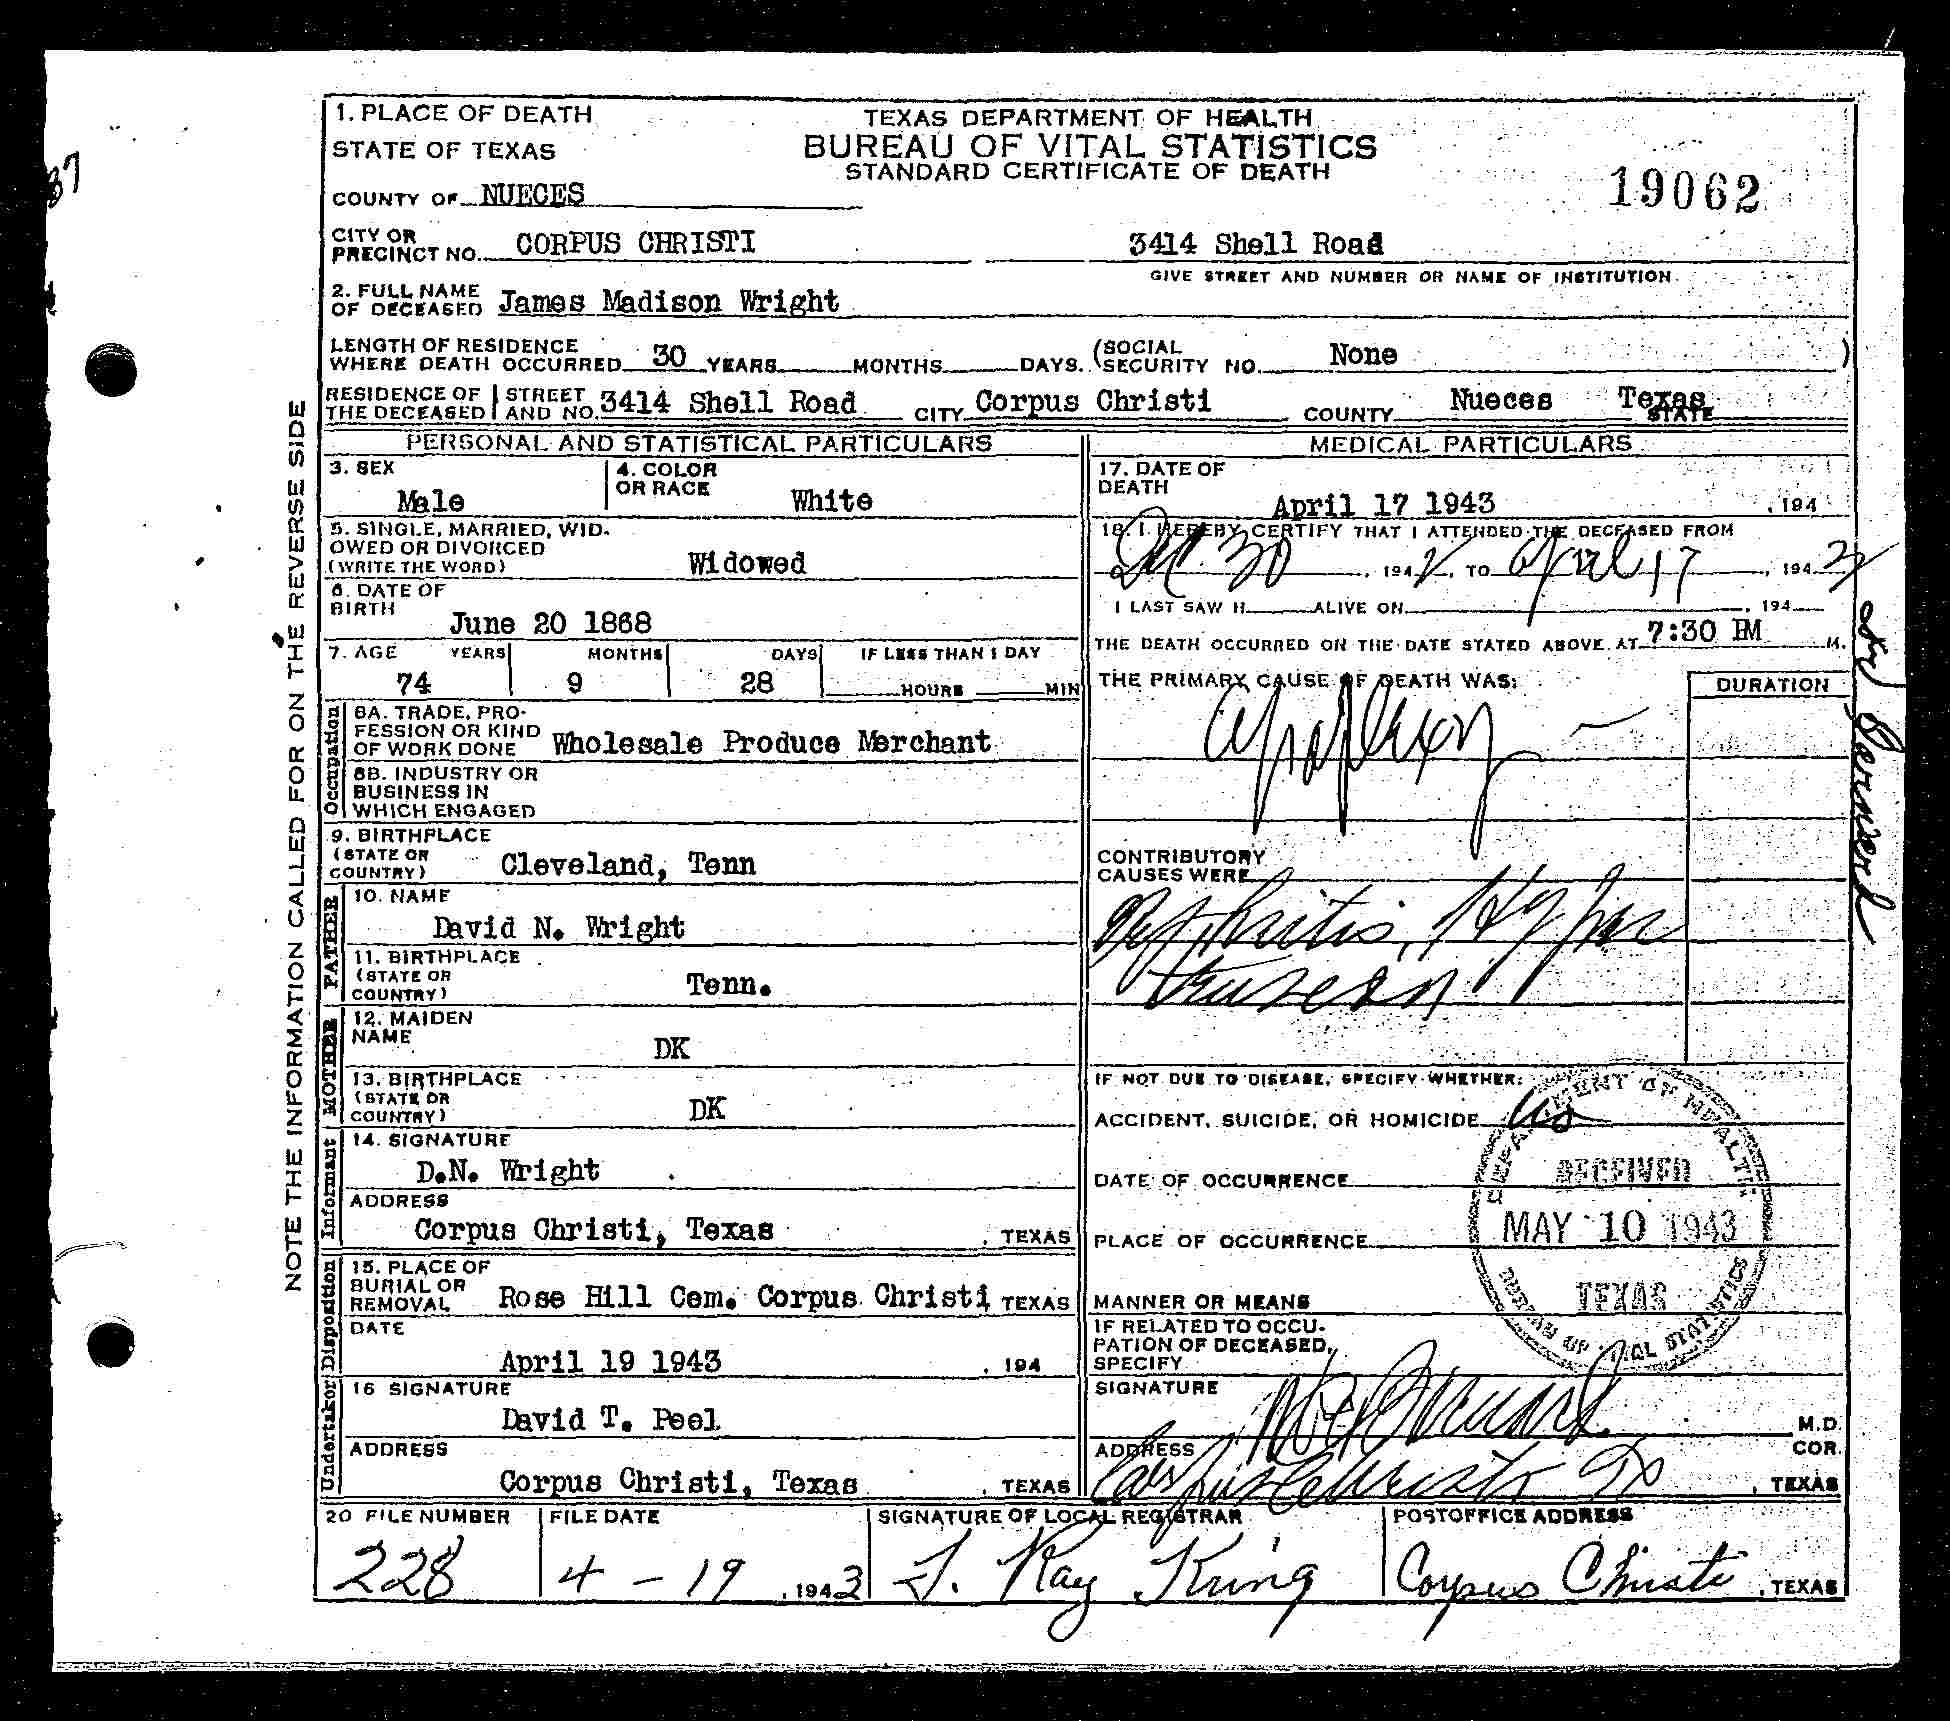 1. PLACE OF DEATH
STATE OF TEXAS
COUNTY OF NUECES
TEXAS DEPARTMENT OF HEALTH
BUREAU OF VITAL STATISTICS
STANDARD CERTIFICATE OF DEATH
19062
37
CITY OR PRECINCT NO. CORPUS CHRISTI 3414 Shell Road
GIVE STREET AND NUMBER OR NAME OF INSTITUTION
2. FULL NAME OF DECEASED James Madison Wright
LENGTH OF RESIDENCE WHERE DEATH OCCURRED 30 YEARS MONTHS DAYS. (SOCIAL SECURITY NO. None )
RESIDENCE OF THE DECEASED STREET AND NO. 3414 Shell Road CITY Corpus Christi COUNTY Nueces Texas STATE
NOTE THE INFORMATION CALLED FOR ON THE REVERSE SIDE
PERSONAL AND STATISTICAL PARTICULARS
3. SEX
Male
4. COLOR OR RACE
White
5. SINGLE, MARRIED, WIDOWED OR DIVORCED
(WRITE THE WORD)
Widowed
6. DATE OF BIRTH
June 20 1868
7. AGE YEARS MONTHS DAYS IF LESS THAN 1 DAY
74 9 28 HOURS MIN
Occupation
8A. TRADE, PROFESSION OR KIND OF WORK DONE Wholesale Produce Merchant
8B. INDUSTRY OR BUSINESS IN WHICH ENGAGED
9. BIRTHPLACE
(STATE OR COUNTRY) Cleveland, Tenn
FATHER
10. NAME
David N. Wright
11. BIRTHPLACE
(STATE OR COUNTRY) Tenn.
MOTHER
12. MAIDEN NAME
DK
13. BIRTHPLACE
(STATE OR COUNTRY) DK
Informant
14. SIGNATURE
D.N. Wright
ADDRESS
Corpus Christi, Texas , TEXAS
Disposition
15. PLACE OF BURIAL OR REMOVAL Rose Hill Cem. Corpus Christi TEXAS
DATE
April 19 1943 , 194
Undertaker
16 SIGNATURE
David T. Peel
ADDRESS
Corpus Christi, Texas , TEXAS
MEDICAL PARTICULARS
17. DATE OF DEATH
April 17 1943 , 194
18. I HEREBY CERTIFY THAT I ATTENDED THE DECEASED FROM
Dec. 30, 1942, TO April 17, 1943
I LAST SAW H ALIVE ON , 194
THE DEATH OCCURRED ON THE DATE STATED ABOVE AT 7:30 PM M.
THE PRIMARY CAUSE OF DEATH WAS:
DURATION
Apoplexy
CONTRIBUTORY CAUSES WERE
Nephritis, Hyper
tension
IF NOT DUE TO DISEASE, SPECIFY WHETHER:
ACCIDENT, SUICIDE, OR HOMICIDE
DATE OF OCCURRENCE
PLACE OF OCCURRENCE
MANNER OR MEANS
DEPARTMENT OF HEALTH
RECEIVED
MAY 10 1943
TEXAS
BUREAU OF VITAL STATISTICS
IF RELATED TO OCCUPATION OF DECEASED, SPECIFY
SIGNATURE M.D.
COR.
ADDRESS Corpus Christi Tx , TEXAS
20 FILE NUMBER FILE DATE SIGNATURE OF LOCAL REGISTRAR POSTOFFICE ADDRESS
228 4 - 19 , 1943 J. Ray Kring Corpus Christi , TEXAS